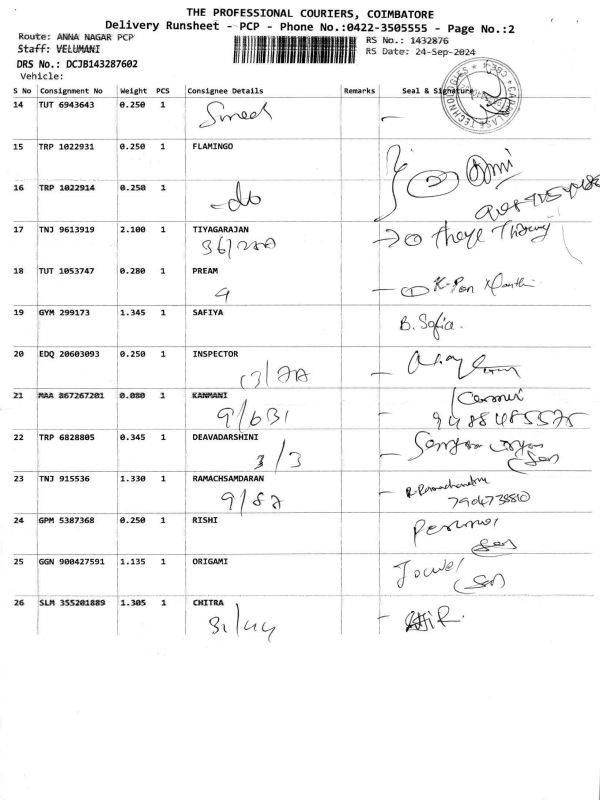 THE PROFESSIONAL COURIERS, COIMBATORE
Delivery Runsheet - PCP - Phone No.:0422-3505555 - Page No.:2
Route: ANNA NAGAR PCP RS No.: 1432876
Staff: VELUMANI RS Date: 24-Sep-2024
DRS No.: DCJB143287602
Vehicle:
S No Consignment No Weight PCS Consignee Details Remarks Seal & Signature
14 TUT 6943643 0.250 1
15 TRP 1022931 0.250 1 FLAMINGO
16 TRP 1022914 0.250 1
-do
17 TNJ 9613919 2.100 1 TIYAGARAJAN
18 TUT 1053747 0.280 1 PREAM
9
19 GYM 299173 1.345 1 SAFIYA
B. Sofia.
20 EDQ 20603093 0.250 1 INSPECTOR
21 MAA 867267201 0.080 1 KANMANI
9/631 9488485575
22 TRP 6828805 0.345 1 DEAVADARSHINI
3/3
23 TNJ 915536 1.330 1 RAMACHSAMDARAN
9/82 R. Ramachandran
7904738810
24 GPM 5387368 0.250 1 RISHI
25 GGN 900427591 1.135 1 ORIGAMI
26 SLM 355201889 1.305 1 CHITRA
31/44